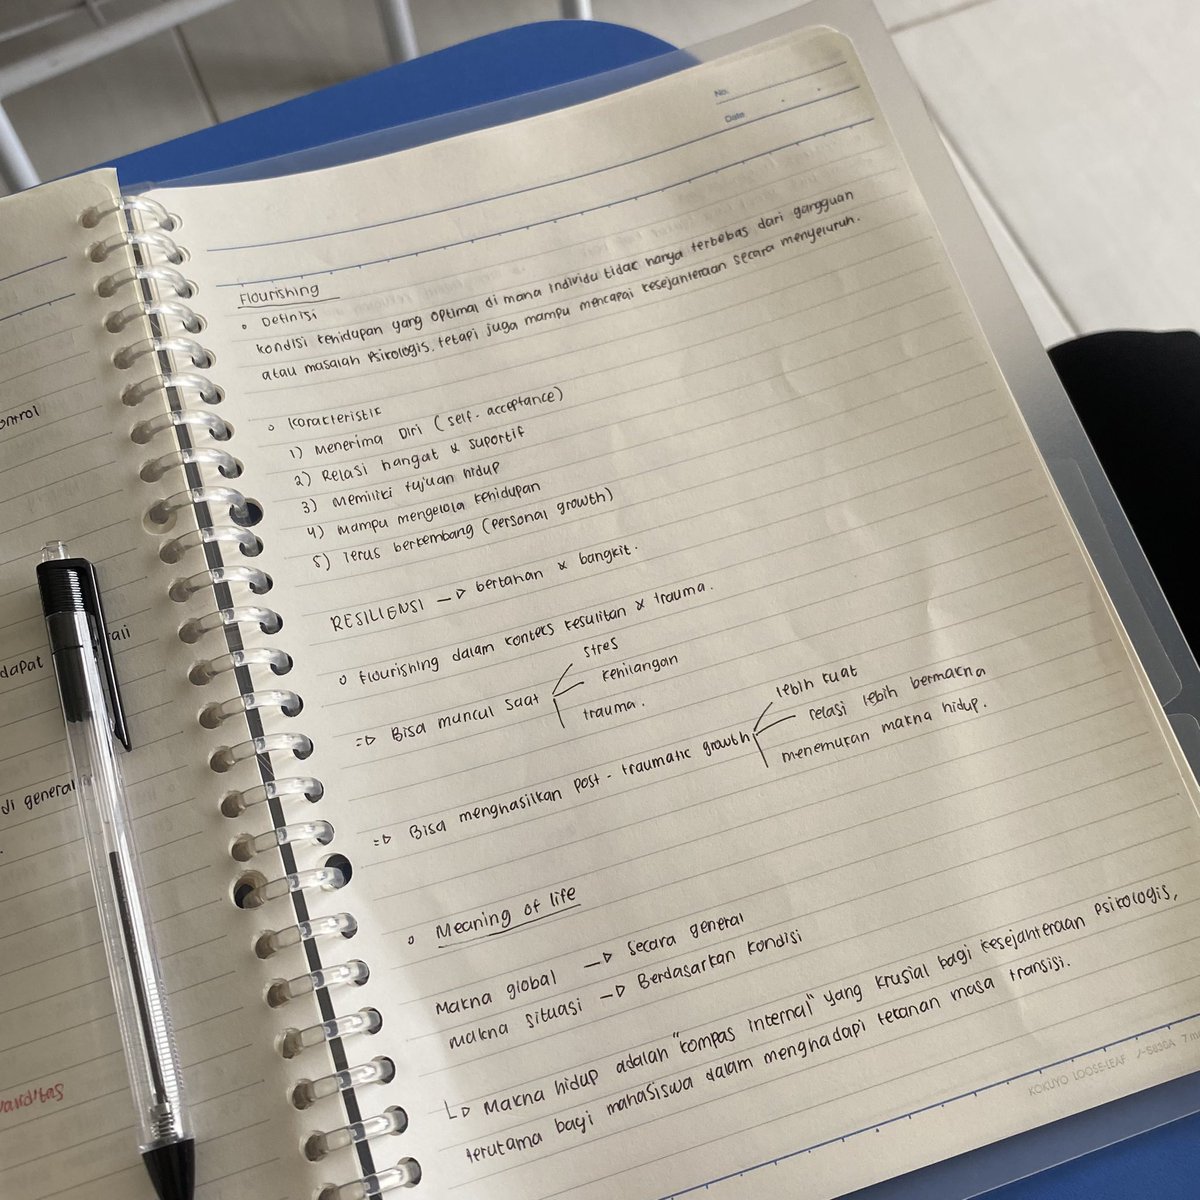 ontrol
dapat
tau
di general
validitas
No.
Date
Flourishing
Definisi
kondisi kehidupan yang optimal di mana individu tidak hanya terbebas dari gangguan
atau masalah psikologis, tetapi juga mampu mencapai kesejahteraan secara menyeluruh.
Karakteristik
1) Menerima Diri (self-acceptance)
2) Relasi hangat & suportif
3) Memiliki tujuan hidup
4) Mampu mengelola kehidupan
5) Terus berkembang (personal growth)
RESILIENSI → bertahan & bangkit.
Flourishing dalam konteks kesulitan & trauma.
⇒ Bisa muncul saat
stres
kehilangan
trauma.
⇒ Bisa menghasilkan post-traumatic growth
lebih kuat
relasi lebih bermakna
menemukan makna hidup.
Meaning of life
Makna global → Secara general
Makna situasi → Berdasarkan kondisi
↳ Makna hidup adalah "kompas internal" yang krusial bagi kesejahteraan psikologis,
terutama bagi mahasiswa dalam menghadapi tekanan masa transisi.
KOKUYO LOOSE-LEAF ノ-S830A 7 m